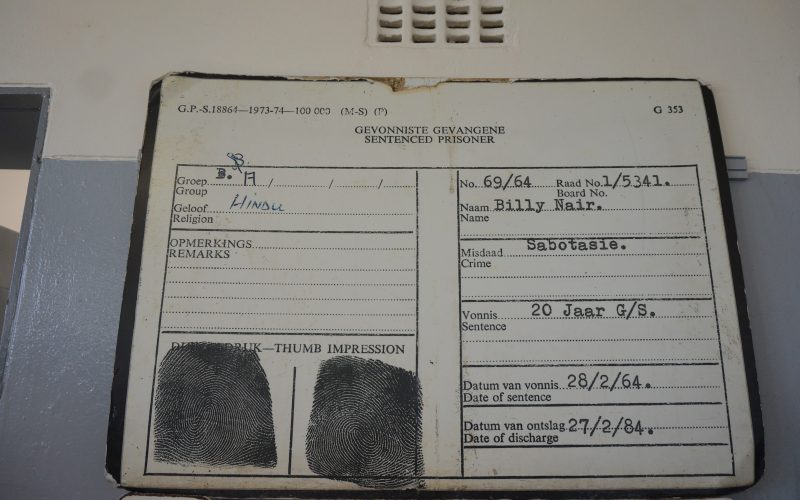 G.P.-S.18864—1973-74—100 000 (M-S) (P)
G 353
GEVONNISTE GEVANGENE
SENTENCED PRISONER
Groep B. A / / /
Group
Geloof HINDU
Religion
OPMERKINGS
REMARKS
DRUK—THUMB IMPRESSION
No. 69/64 Raad No. 1/5341.
Board No.
Naam Billy Nair.
Name
Sabotasie.
Misdaad
Crime
Vonnis 20 Jaar G/S.
Sentence
Datum van vonnis 28/2/64.
Date of sentence
Datum van ontslag 27/2/84.
Date of discharge